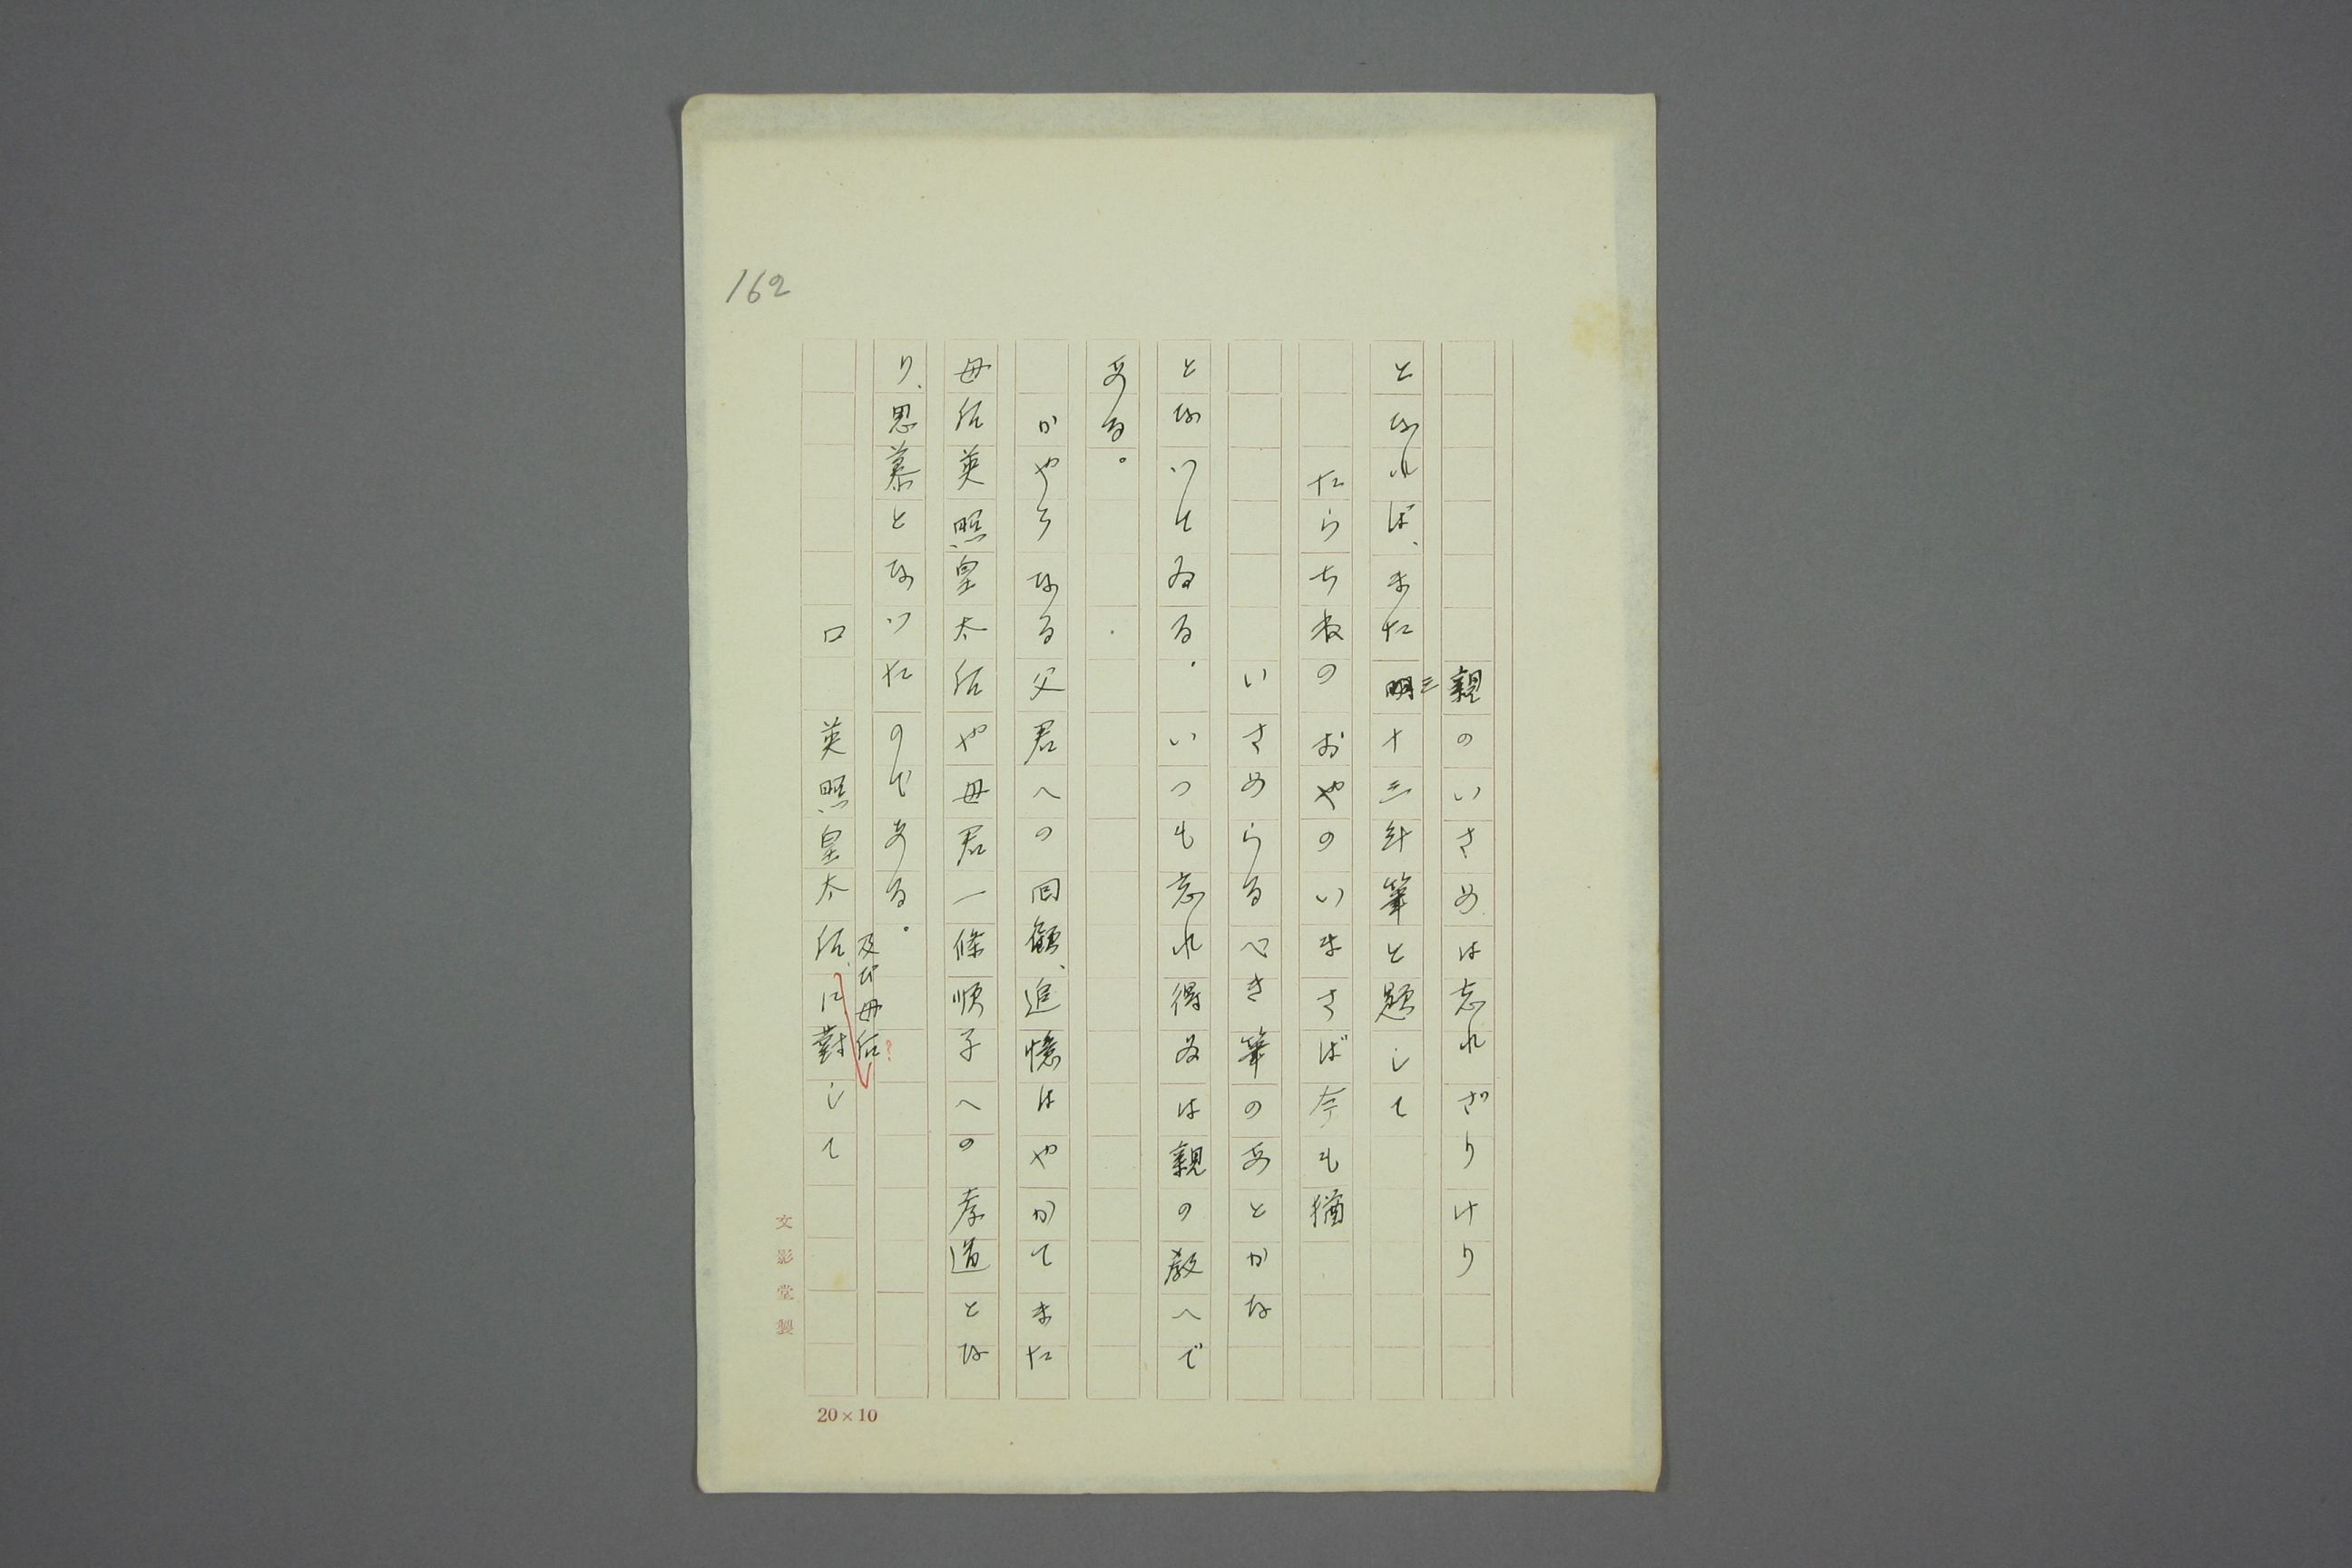 162
親のいさめは忘れざりけり
となれば、また明三十三年筆と題して
たらちねのおやのいまさば今も猶
いさめらるべき筆のあとかな
となつてゐる。いつも忘れ得ぬは親の教へで
ある。
かやうなる父君への回顧、追憶はやがてまた
母后英照皇太后や母君一條順子への孝道とな
り、思慕となつたのである。
ロ 英照皇太后、に對して
及び母后
?
文影堂製
20×10